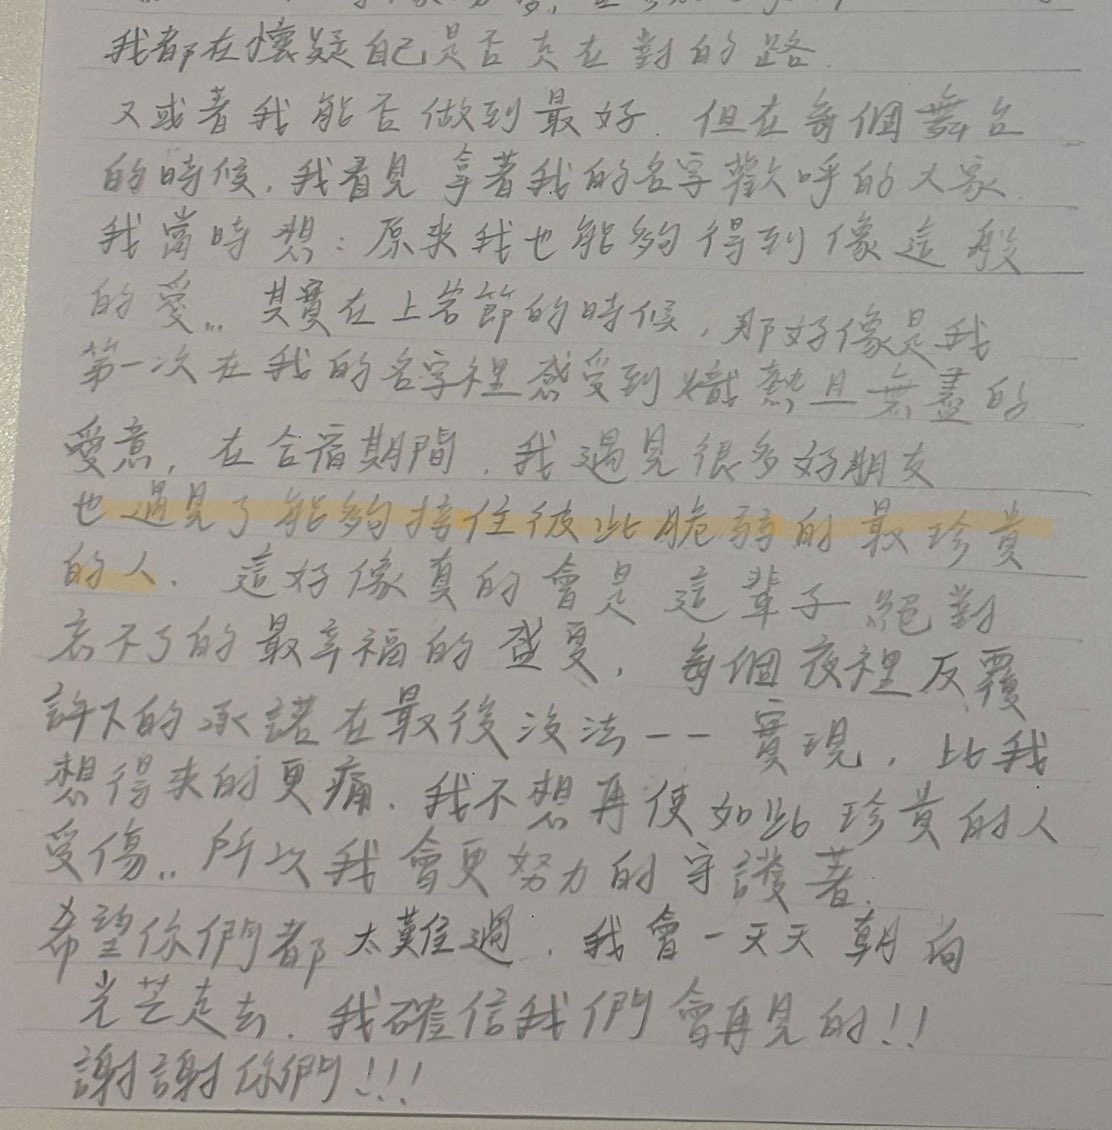 我都在懷疑自己是否走在對的路.
又或著我能否做到最好. 但在每個舞台
的時候, 我看見拿著我的名字歡呼的大家.
我當時想: 原來我也能夠得到像這般
的愛.. 其實在上節的時候, 那好像是我
第一次在我的名字裡感受到熾熱且無盡的
愛意, 在合宿期間, 我遇見很多好朋友
也遇見了能夠接住彼此脆弱的最珍貴
的人. 這好像真的會是這輩子絕對
忘不了的最幸福的盛夏, 每個夜裡反覆
許下的承諾在最後沒法一一實現, 比我
想得來的更痛. 我不想再使如此珍貴的人
受傷.. 所以我會更努力的守護著.
希望你們都太難過. 我會一天天朝向
光芒走去. 我確信我們會再見的!!
謝謝你們!!!